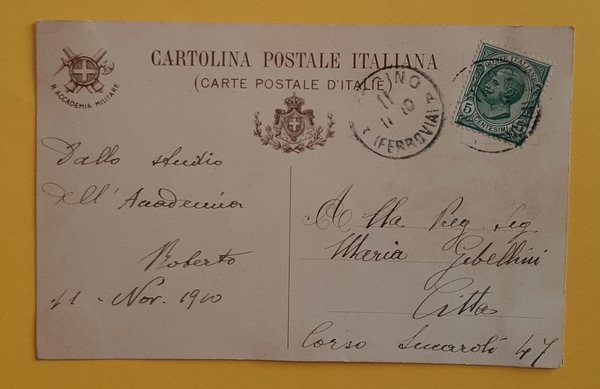 CARTOLINA POSTALE ITALIANA
(CARTE POSTALE D'ITALIE)
R. ACCADEMIA MILITARE
TORINO
11
11 10
(FERROVIA)
POSTE ITALIANE
5
CENTESIMI
Dallo studio
dell' Accademia
Roberto
11 - Nov. 1910
Alla Preg. Seg.
Maria Gobellini
Città
Corso 47